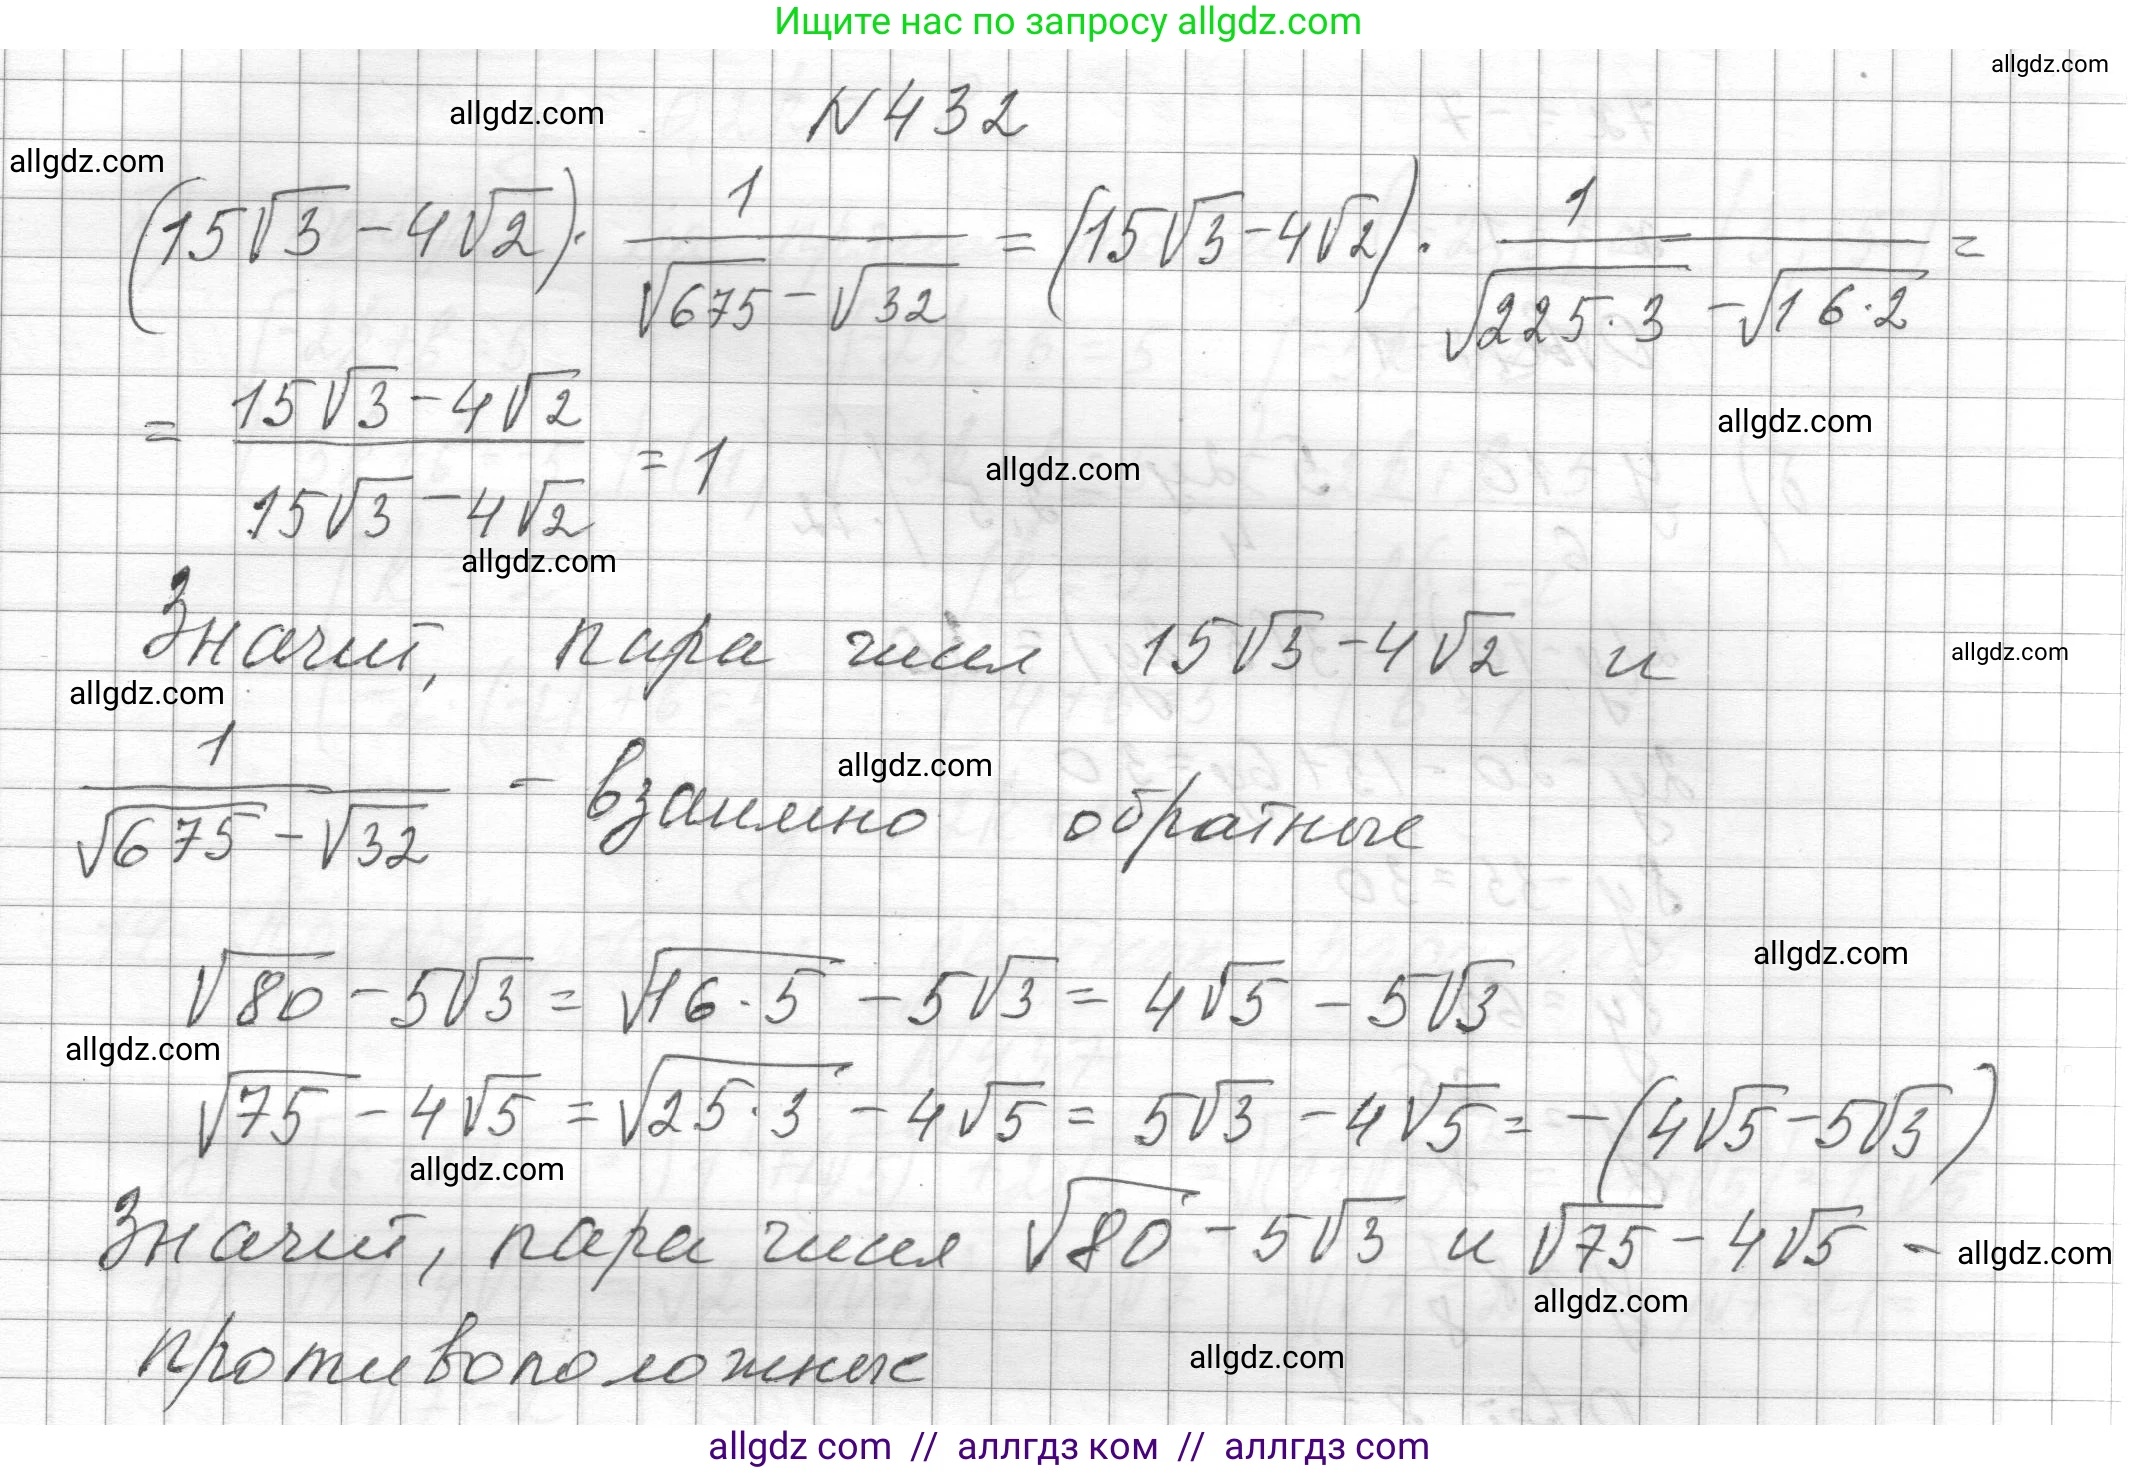 Ищите нас по запросу allgdz.com
allgdz.com
allgdz.com
N 432
allgdz.com
(15√3 - 4√2) · 1/(√675 - √32) = (15√3 - 4√2) · 1/(√225·3 - √16·2) =
= (15√3 - 4√2)/(15√3 - 4√2) = 1
allgdz.com
allgdz.com
allgdz.com
Значит, пара чисел 15√3 - 4√2 и
allgdz.com
allgdz.com
1/(√675 - √32) - взаимно обратные
allgdz.com
√80 - 5√3 = √16·5 - 5√3 = 4√5 - 5√3
allgdz.com
allgdz.com
√75 - 4√5 = √25·3 - 4√5 = 5√3 - 4√5 = -(4√5 - 5√3)
allgdz.com
Значит, пара чисел √80 - 5√3 и √75 - 4√5 -
allgdz.com
allgdz.com
противоположные
allgdz.com
allgdz com // аллгдз ком // аллгдз com